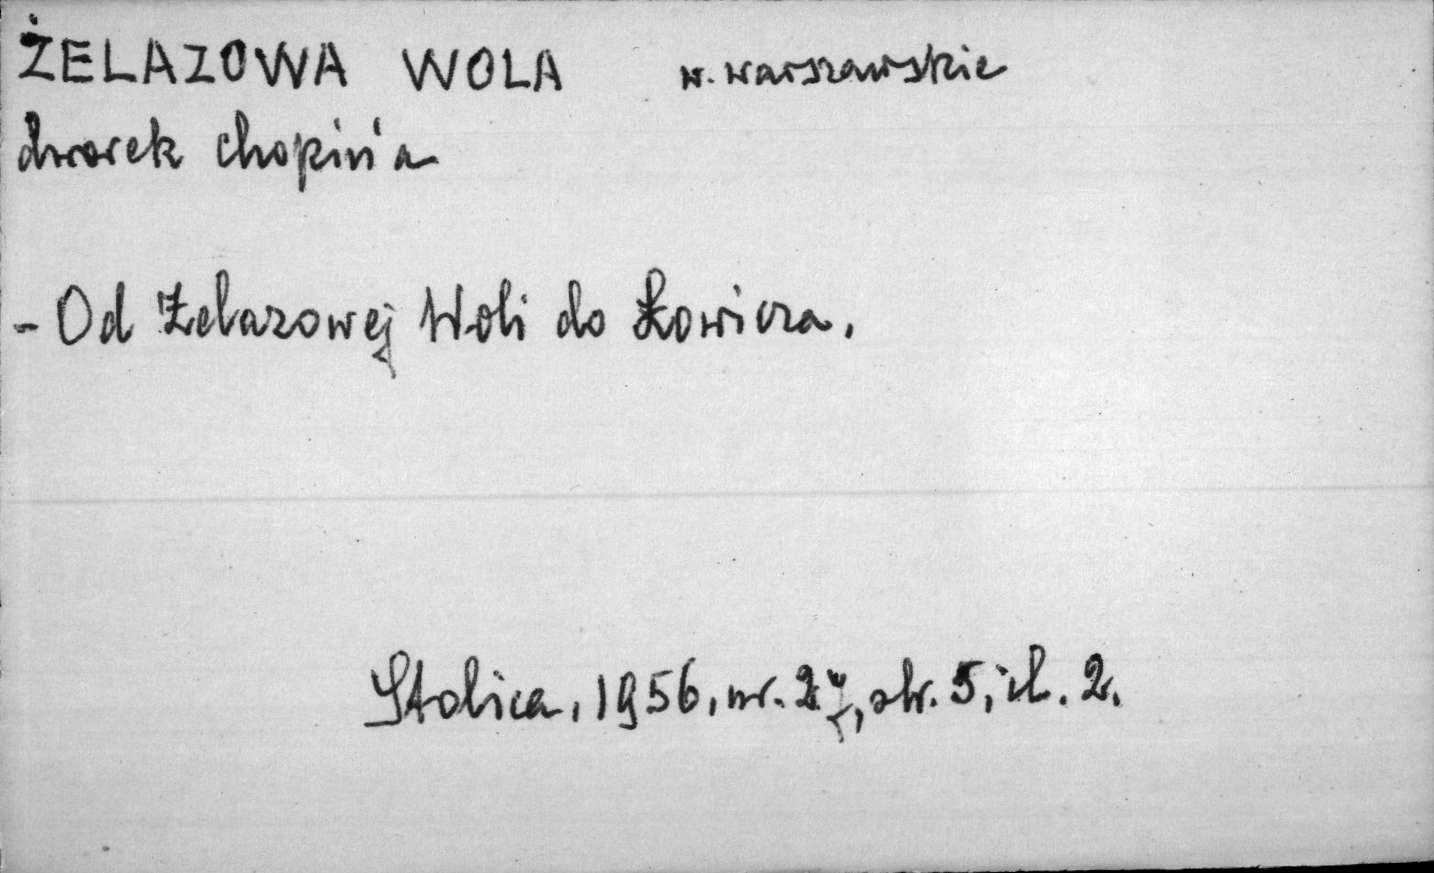 ŻELAZOWA WOLA w. warszawskie
dworek Chopin'a
- Od Żelazowej Woli do Łowicza.
Stolica, 1956, nr. 27, str. 5, il. 2.